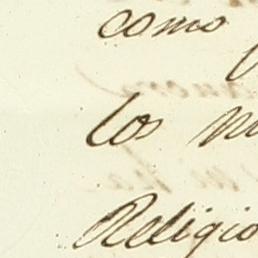 como
los
Religio